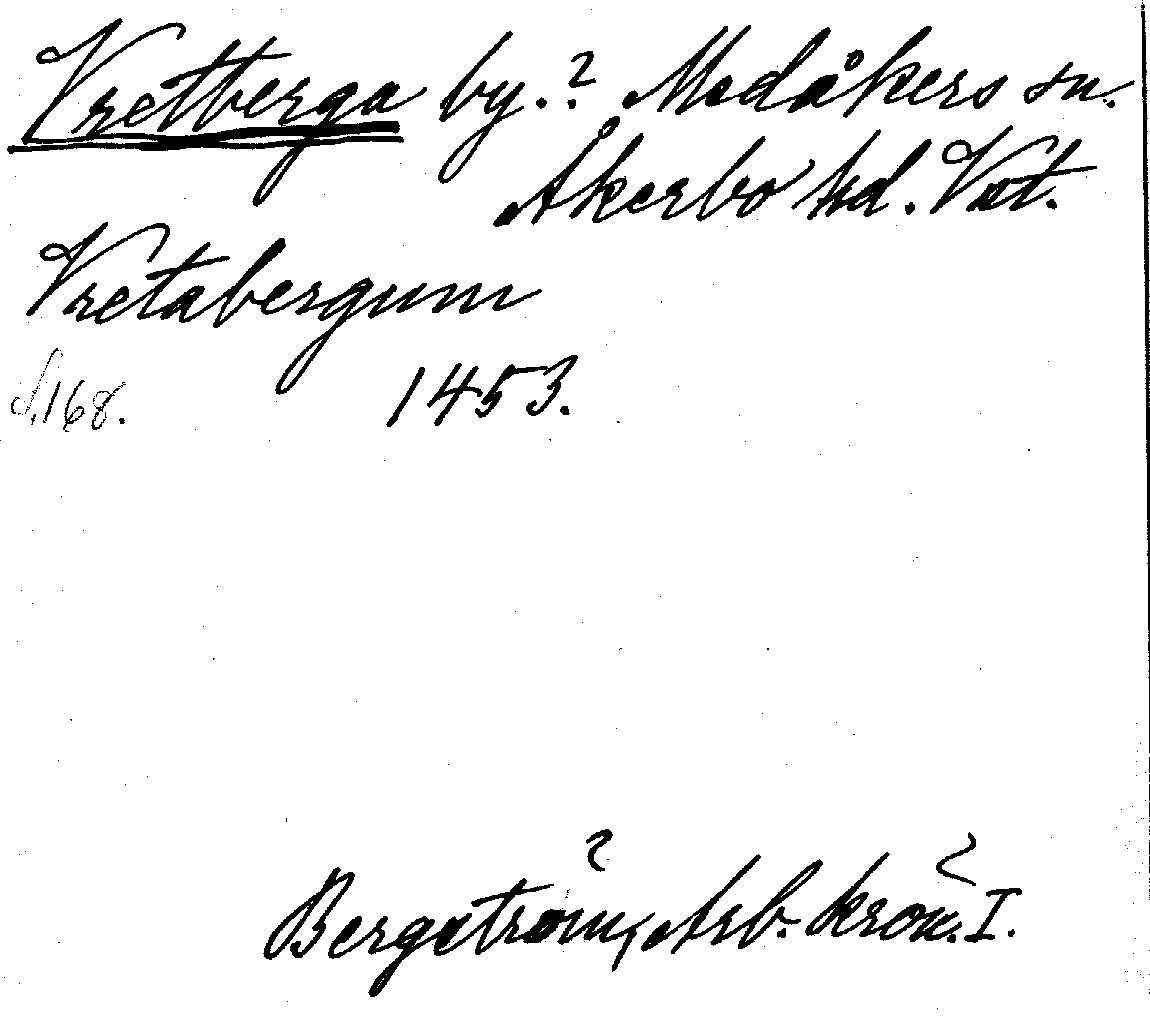 Vretberga by.? Medåkers sn.
Åkerbo hd. Vst.
Vretabergum
s. 168. 1453.
Bergström, Arb. krön. I.